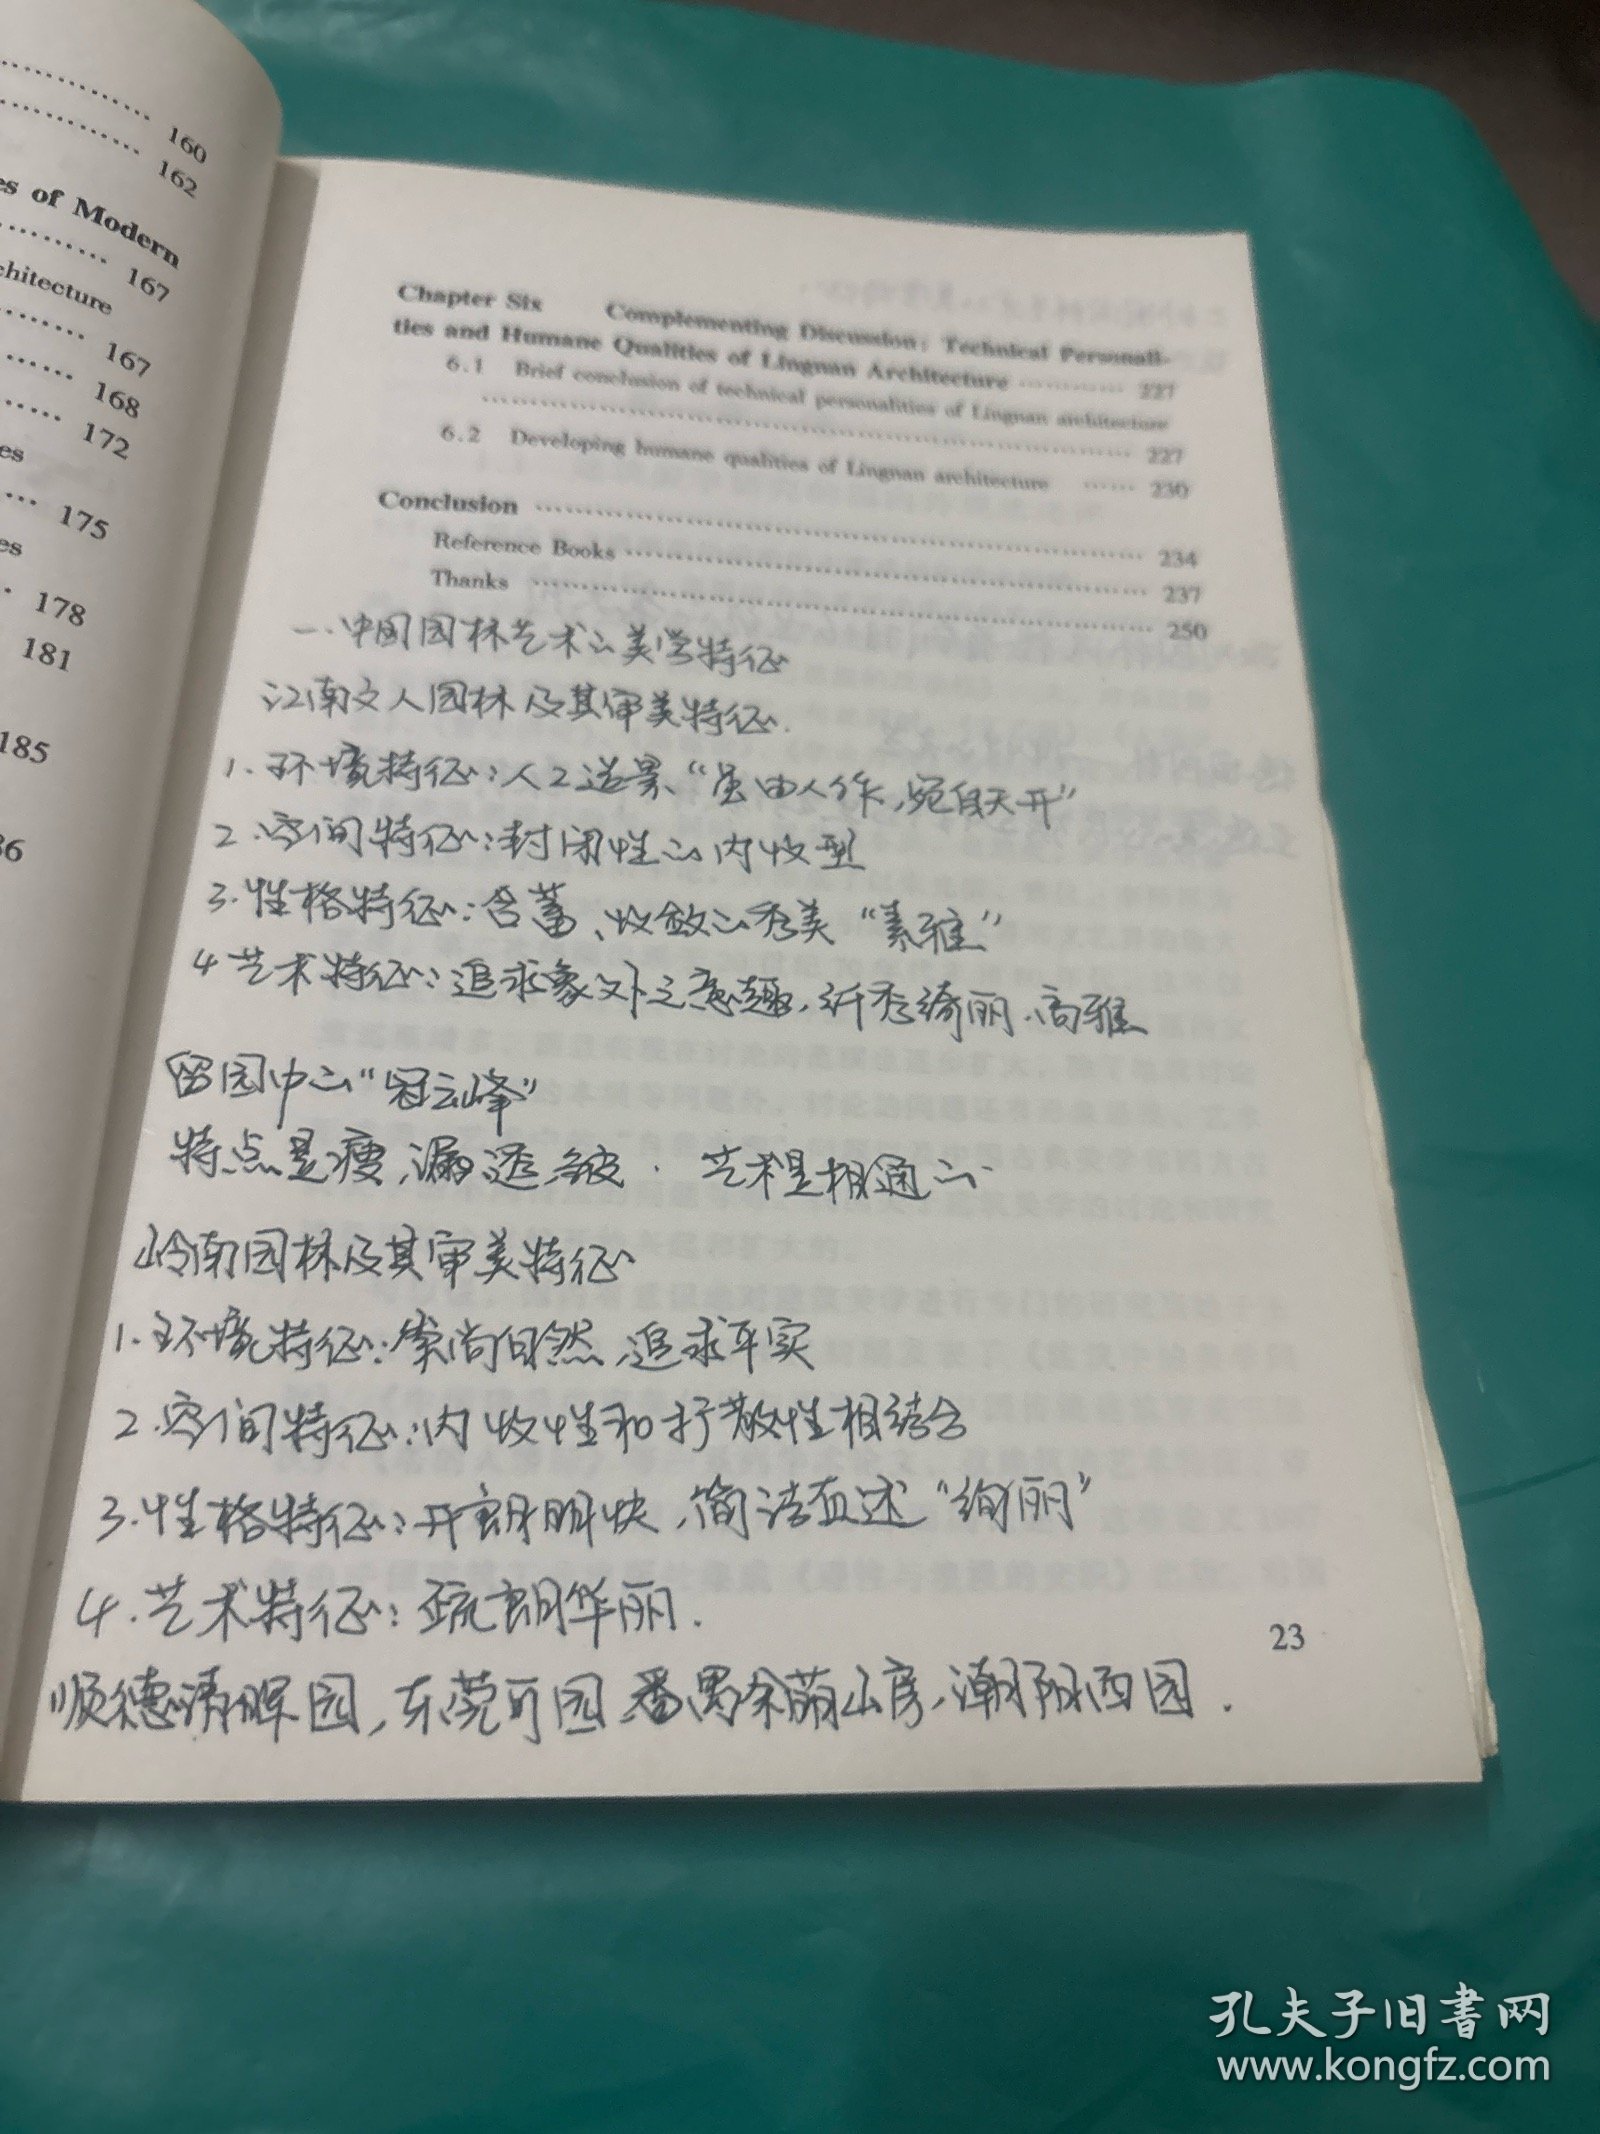 160
162
es of Modern
167
chitecture
167
168
172
es
175
es
178
181
185
86
Chapter Six Complementing Discussion: Technical Personali-
ties and Humane Qualities of Lingnan Architecture ············ 227
6.1 Brief conclusion of technical personalities of Lingnan architecture
············ 227
6.2 Developing humane qualities of Lingnan architecture ······ 230
Conclusion ············ 234
Reference Books ············ 237
Thanks ············ 250
一.中国园林艺术的美学特征
江南文人园林及其审美特征.
1.环境特征:人工造景“虽由人作,宛自天开”
2.空间特征:封闭性的内收型
3.性格特征:含蓄、收敛的秀美“素雅”
4 艺术特征:追求象外之意趣,纤秀绮丽.高雅
留园中的“冠云峰”
特点是瘦,漏,透,皱. 艺术是相通的.
岭南园林及其审美特征
1.环境特征:崇尚自然,追求平实
2.空间特征:内收性和扩散性相结合
3.性格特征:开朗明快,简洁直述“绚丽”
4.艺术特征:疏朗华丽.
顺德清晖园,东莞可园,番禺余荫山房,潮阳西园.
23
孔夫子旧书网
www.kongfz.com